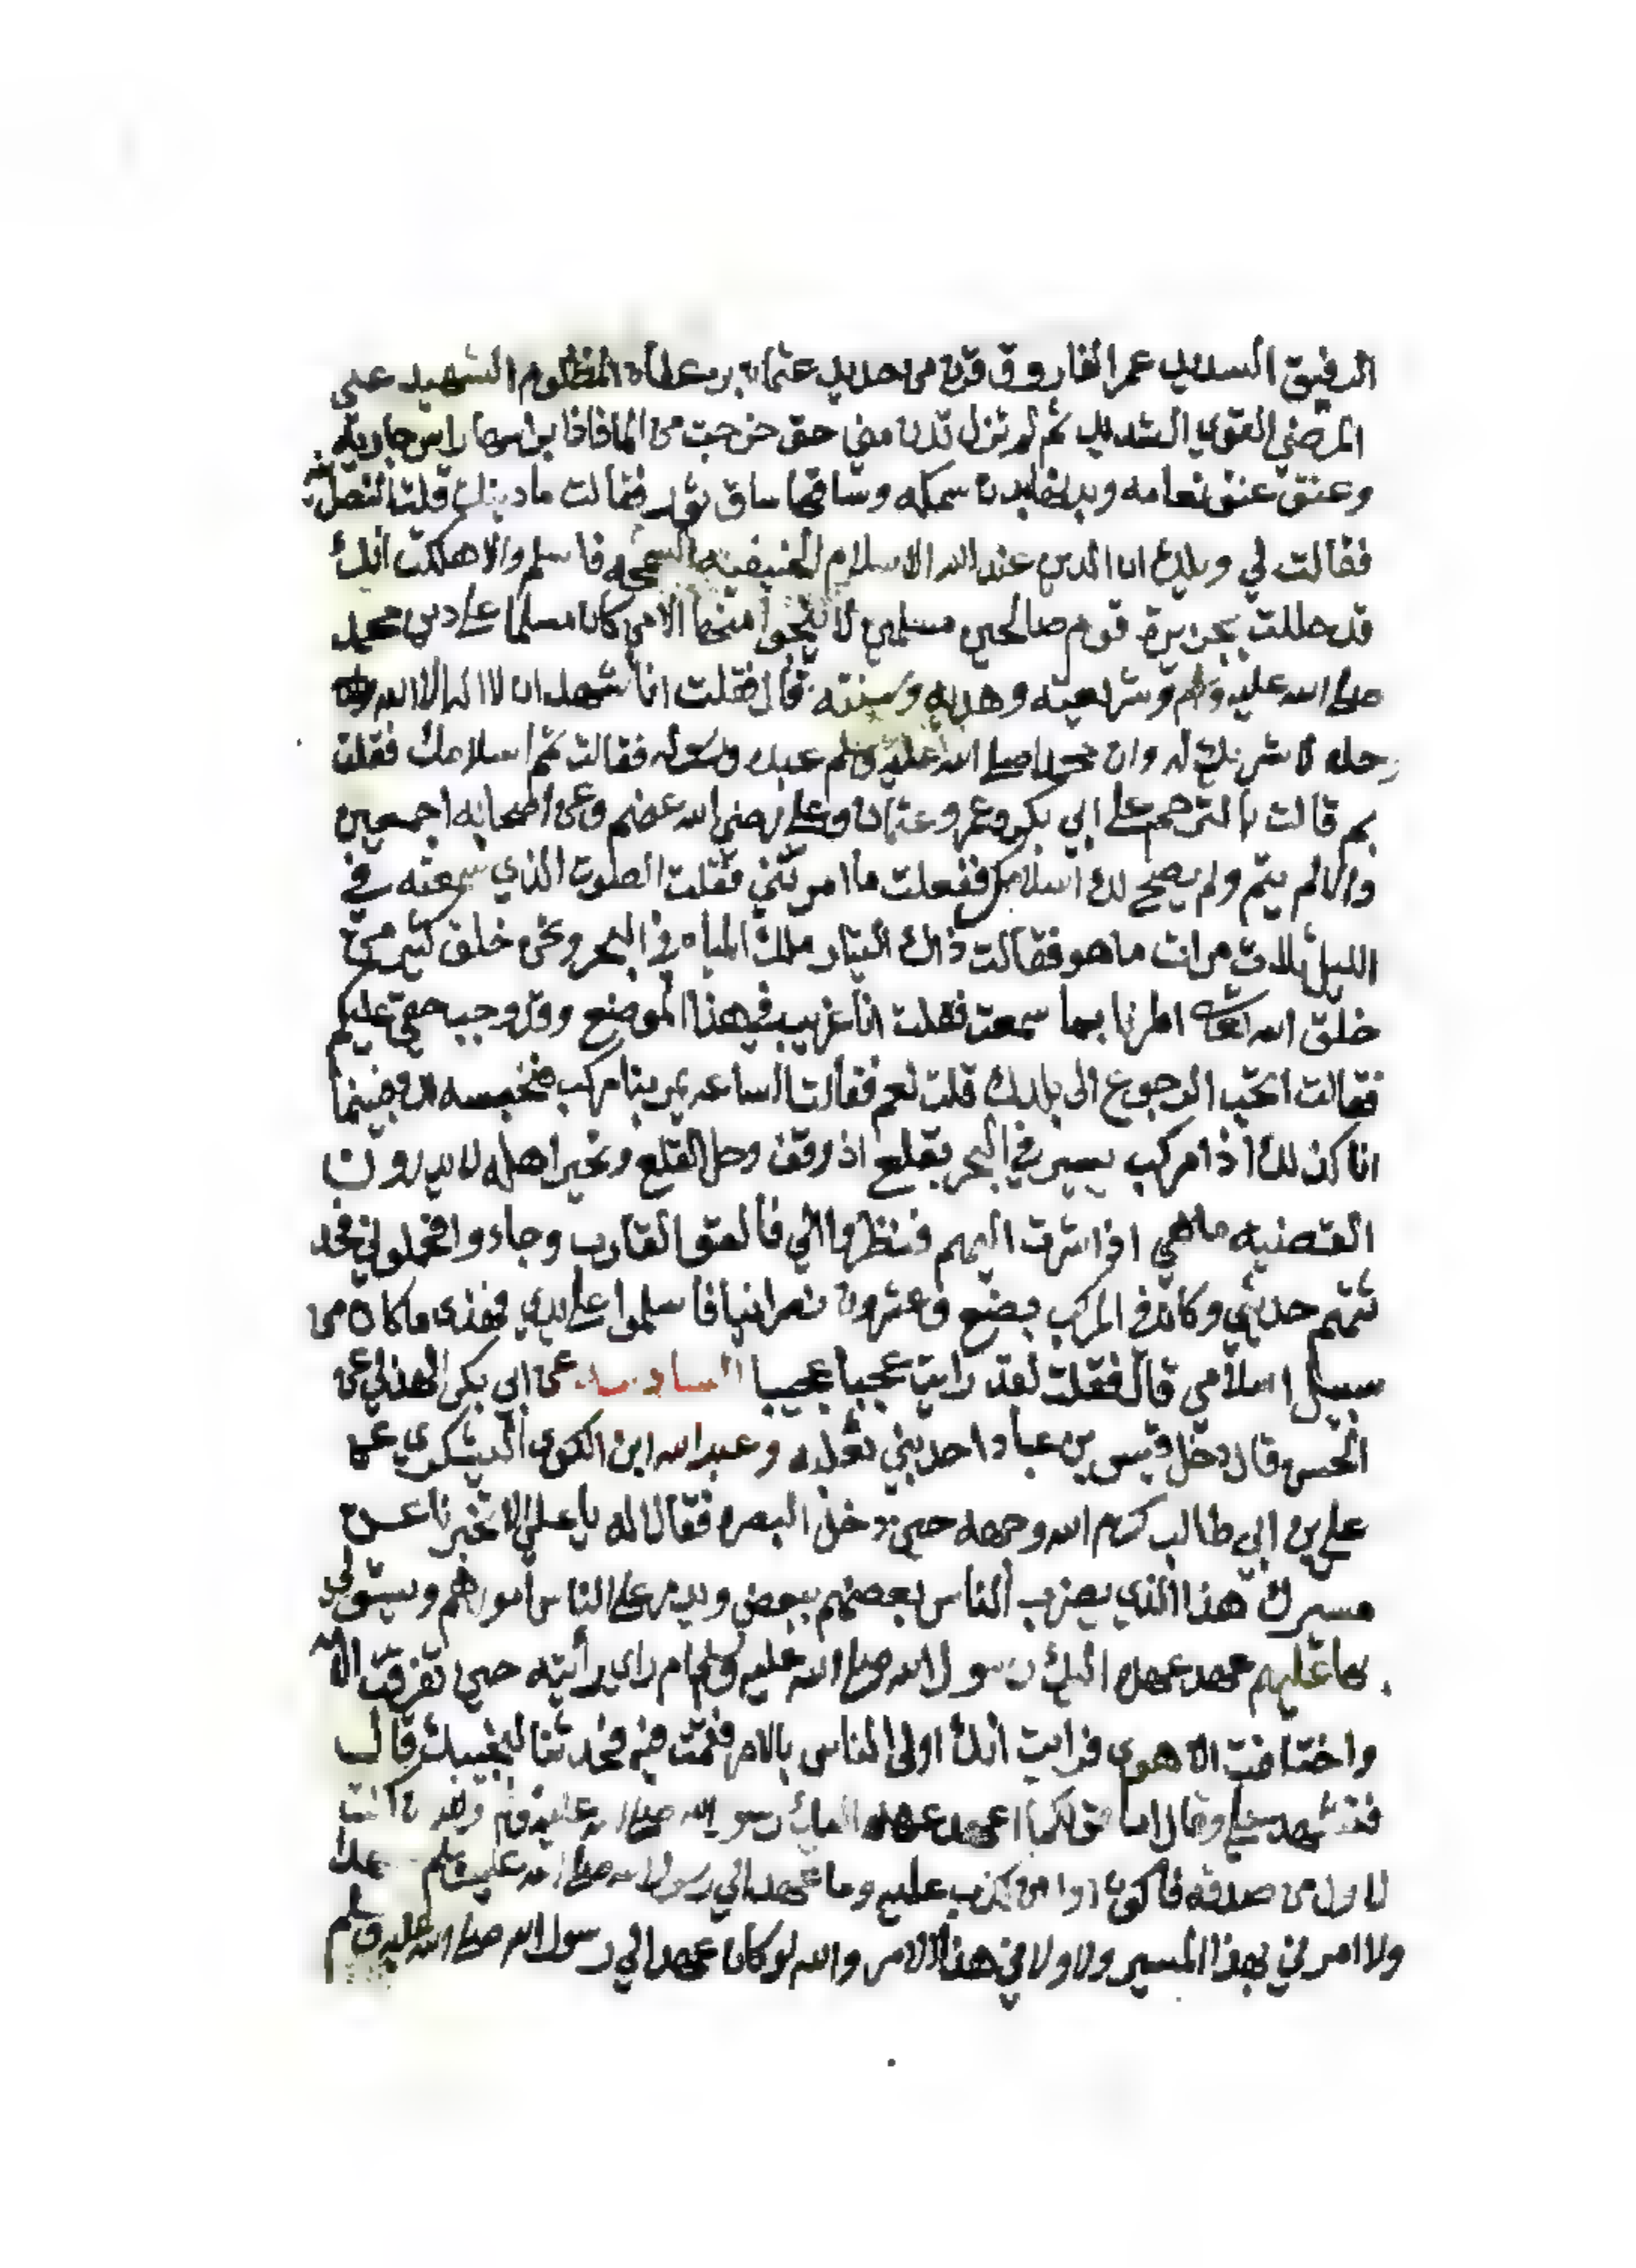 الرفيق السديد عمر الفاروق قرن من حديد عثمان بن عفان المظلوم الشهيد على
المرضي القوي الشديد ثم لم تزل تدنا مني حتى خرجت من الما فاذا براسها راس جارية
وعنق عنق نعامه وبدنها بدن سمكه وساقها ساق ثور فقالت ما دينك قلت النصرانيه
فقالت لي ويلك ان الدين عند الله الاسلام الحنيفيه السمحه فاسلم والا هلكت انك
قد حللت بجزيرة قوم صالحين مسلمين لا ينجوا منها الا من كان مسلما على دين محمد
صلى الله عليه وسلم وشريعته وهديه وسنته قال فقلت انا اشهد ان لا اله الا الله
وحده لا شريك له وان محمدا صلى الله عليه وسلم عبده ورسوله فقالت تمم اسلامك فقلت
بم قالت بالترحم على ابي بكر وعمر وعثمان وعلي رضي الله عنهم وعن اصحابه اجمعين
والا لم يتم ولم يصح لك اسلامك ففعلت ما امرتني فقلت الصلوت الذي سمعته في
الليل ثلاث مرات ما هو فقالت ذاك التيار ملك المياه في البحر ونحن خلق كثير من
خلق الله تعالى امرنا بما سمعت فقلت انا غريب في هذا الموضع وقد وجب حقي عليكم
فقالت اتحب الرجوع الى بلدك قلت نعم فقالت الساعه يمر بنا مركب فنحبسه لك وبينما
انا كذلك اذا مركب يسير في البحر بقلع اذ وقف وحل القلع وتحير اهله لا يدرون
القضيه ما هي اذ اشرت اليهم فنظروا الي فالقوا القارب وجاءوا فحملوني فحد
ثتهم حديثي وكان في المركب بضع وعشرون نصرانيا فاسلموا على يدي فهذه ما كان من
سبيل اسلامي قال فقلت لقد رايت عجبا عجيبا السادسه عن ابي بكر الهذلي عن
الحسن وقال دخل قيس بن عباد احد بني ثعلبه وعبد الله ابن الكوى اليشكري على
علي بن ابي طالب كرم الله وجهه حين دخل البصره فقالا له يا علي الا تخبرنا عن
مسيرك هذا الذي يضرب الناس بعضهم ببعض على الناس امورهم ويستولي
بها عليهم عهد عهده اليك رسول الله صلى الله عليه وسلم ام راي رأيته حين تفرقت الامه
واختلفت الاهوى فرايت انك اولى الناس بالامر فقمت فيه فحدثنا ليجيبك قال
فتشهد علي وقال اما قولكما اعهد عهده اليك رسول الله صلى الله عليه وسلم والله لا كنت
لاول من صدقه فاكون اول من يكذب عليه وما عهد الي رسول الله صلى الله عليه وسلم عهدا
ولا امرني بهذا المسير ولا ولاني هذا الامر والله لو كان عهد الي رسول الله صلى الله عليه وسلم